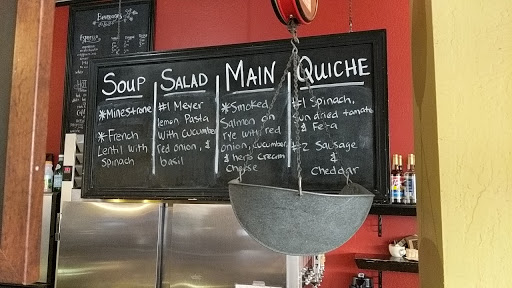 Beverages
Espresso
SOUP
*Minestrone
*French
Lentil with
Spinach
SALAD
#1 Meyer
lemon Pasta
with cucumber
red onion, &
basil
MAIN
*Smoked
Salmon on
rye with red
onion, cucumber,
& herb cream
cheese
QUICHE
#1 Spinach,
Sun dried tomato
& Feta
#2 Sausage
&
Cheddar